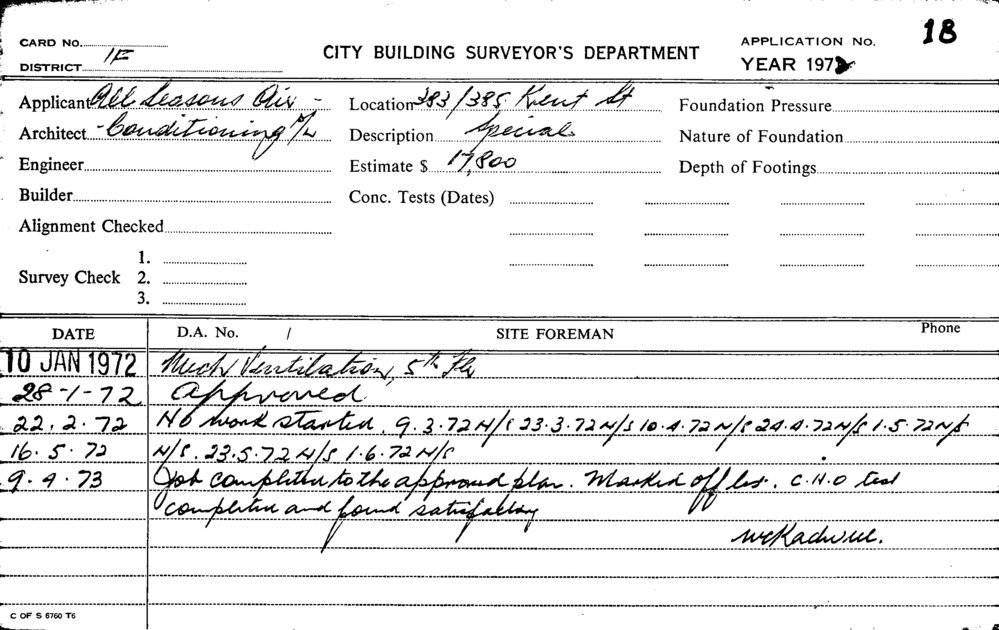 CARD No.
DISTRICT 1F
CITY BUILDING SURVEYOR'S DEPARTMENT
APPLICATION No. 18
YEAR 1972
Applicant All Seasons Air -
Location 383/385 Kent St
Foundation Pressure
Architect - Conditioning P/L
Description Special
Nature of Foundation
Engineer
Estimate $ 17,800
Depth of Footings
Builder
Conc. Tests (Dates)
Alignment Checked
Survey Check 1.
2.
3.
DATE D.A. No. / SITE FOREMAN Phone
10 JAN 1972 Mech Ventilation, 5th Flr
28-1-72 Approved
22.2.72 No work started. 9.3.72 N/S 23.3.72 N/S 10.4.72 N/S 24.4.72 N/S 1.5.72 N/S
16.5.72 N/S. 23.5.72 N/S 1.6.72 N/S
9.4.73 Job completed to the approved plan. Marked off. C.H.O test
completed and found satisfactory
C OF S 6760 T6